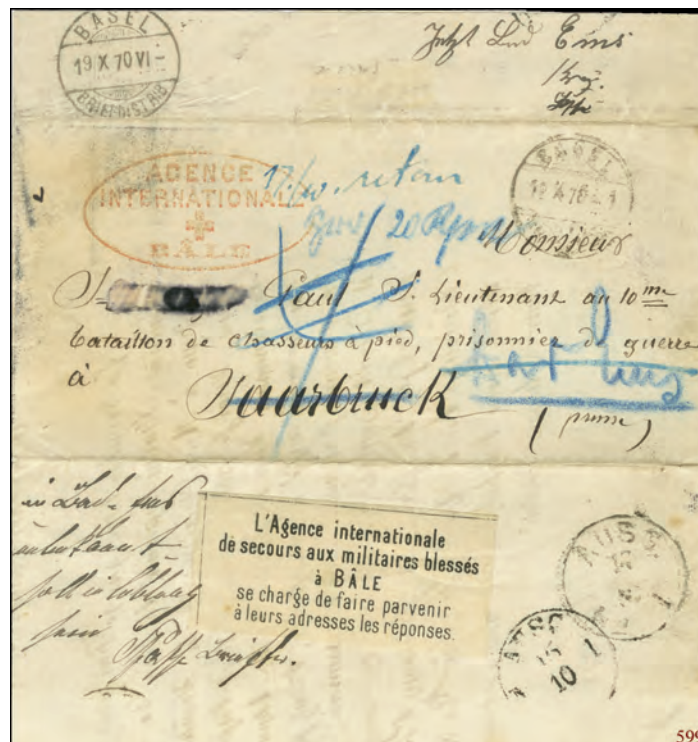 BASEL
19 X 70 VI
BRIEFDISTRIB
Jetzt Bad Ems
AGENCE
INTERNATIONALE
BÂLE
17./10. retour
20 Rp
BASEL
19 X 70
Monsieur
Paul S. Lieutenant au 10me
bataillon de chasseurs à pied, prisonnier de guerre
à Saarbruck
Bad Ems
in Bad-Ems
unbekannt
soll in Coblenz
sein
L'Agence internationale
de secours aux militaires blessés
à BÂLE
se charge de faire parvenir
à leurs adresses les réponses.
AUSG
1
AUSG
15 1
10
599